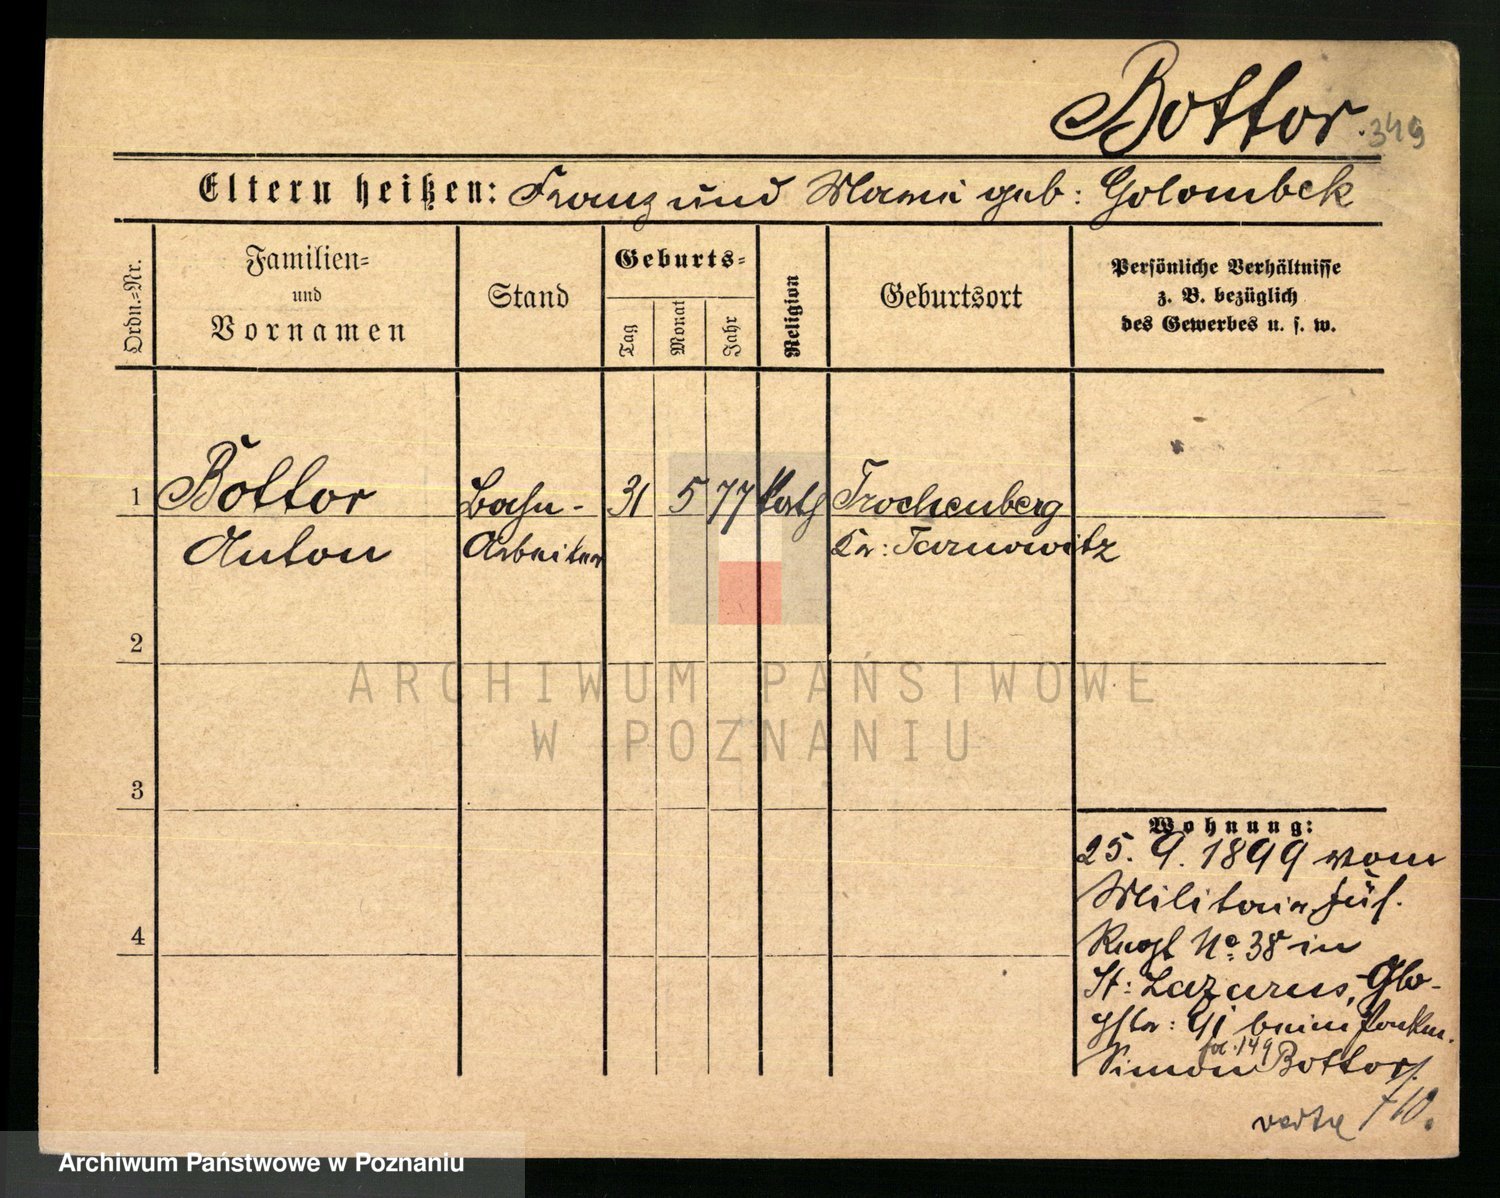 Bottor.
349
Eltern heißen: Franz und Maria geb: Golombek
Ordn.-Nr.
Familien-
und
Vornamen
Stand
Geburts-
Tag
Monat
Jahr
Religion
Geburtsort
Persönliche Verhältnisse
z. B. bezüglich
des Gewerbes u. s. w.
1 Bottor Bahn- 31 5 77 kath Trockenberg
Anton Arbeiter Kr: Tarnowitz
2
3
4
Wohnung:
25. 9. 1899 vom
Militair Füs.
Regt No 38 in
St: Lazarus, Glo-
gstr: 91 beim
fol. 149
Simon Bottor
ARCHIWUM PAŃSTWOWE
W POZNANIU
Archiwum Państwowe w Poznaniu